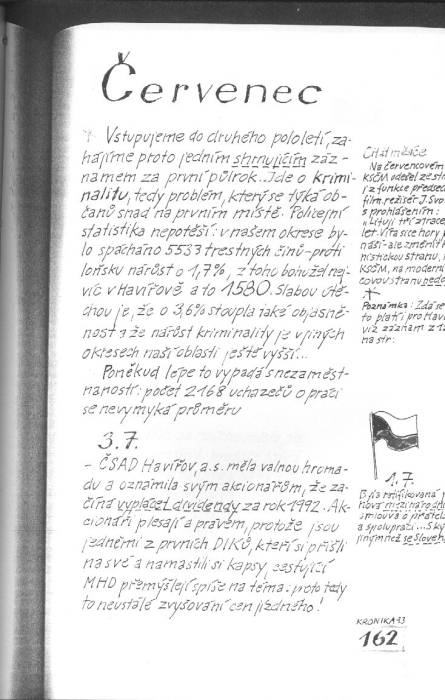 Červenec
Vstupujeme do druhého pololetí, za-
hájíme proto jedním shrnujícím záz-
namem za první půlrok. Jde o krimi-
nalitu, tedy problém, který se týká ob-
čanů snad na prvním místě. Policejní
statistika nepotěší: v našem okrese by-
lo spácháno 5533 trestných činů - proti
loňsku nárůst o 1,7%, z toho bohužel nej-
víc v Havířově a to 1580. Slabou útě-
chou je, že o 3,6% stoupla také objasně-
nost a že nárůst kriminality je v jiných
okresech naší oblasti ještě vyšší...
Poněkud lépe to vypadá s nezaměst-
naností: počet 2168 uchazečů o práci
se nevymyká průměru
3.7.
- ČSAD Havířov, a.s. měla valnou hroma-
du a oznámila svým akcionářům, že za-
číná vyplácet dividendy za rok 1992. Ak-
cionáři plesají a právem, protože jsou
jedněmi z prvních DIKů, kteří si přišli
na své a namastili si kapsy, cestující
MHD přemýšlejí spíše na téma: proto tedy
to neustálé zvyšování cen jízdného!
Citát měsíce
Na červencovém
KSČM odešel ze
i z funkce předsed
film. režisér J. Svo
s prohlášením:
"Lituji tří ztrace
let. Víra sice hory p
náší - ale změnit k
nistickou stranu,
KSČM, na moderní
covou stranu nedo
Poznámka: Zdá se
to platí pro Haví
viz záznam z 1
na str.
1.7.
Byla ratifikována
nová mezinárodní
smlouva o přátels
a spolupráci... S ký
jiným než se Sloven
KRONIKA 93
162